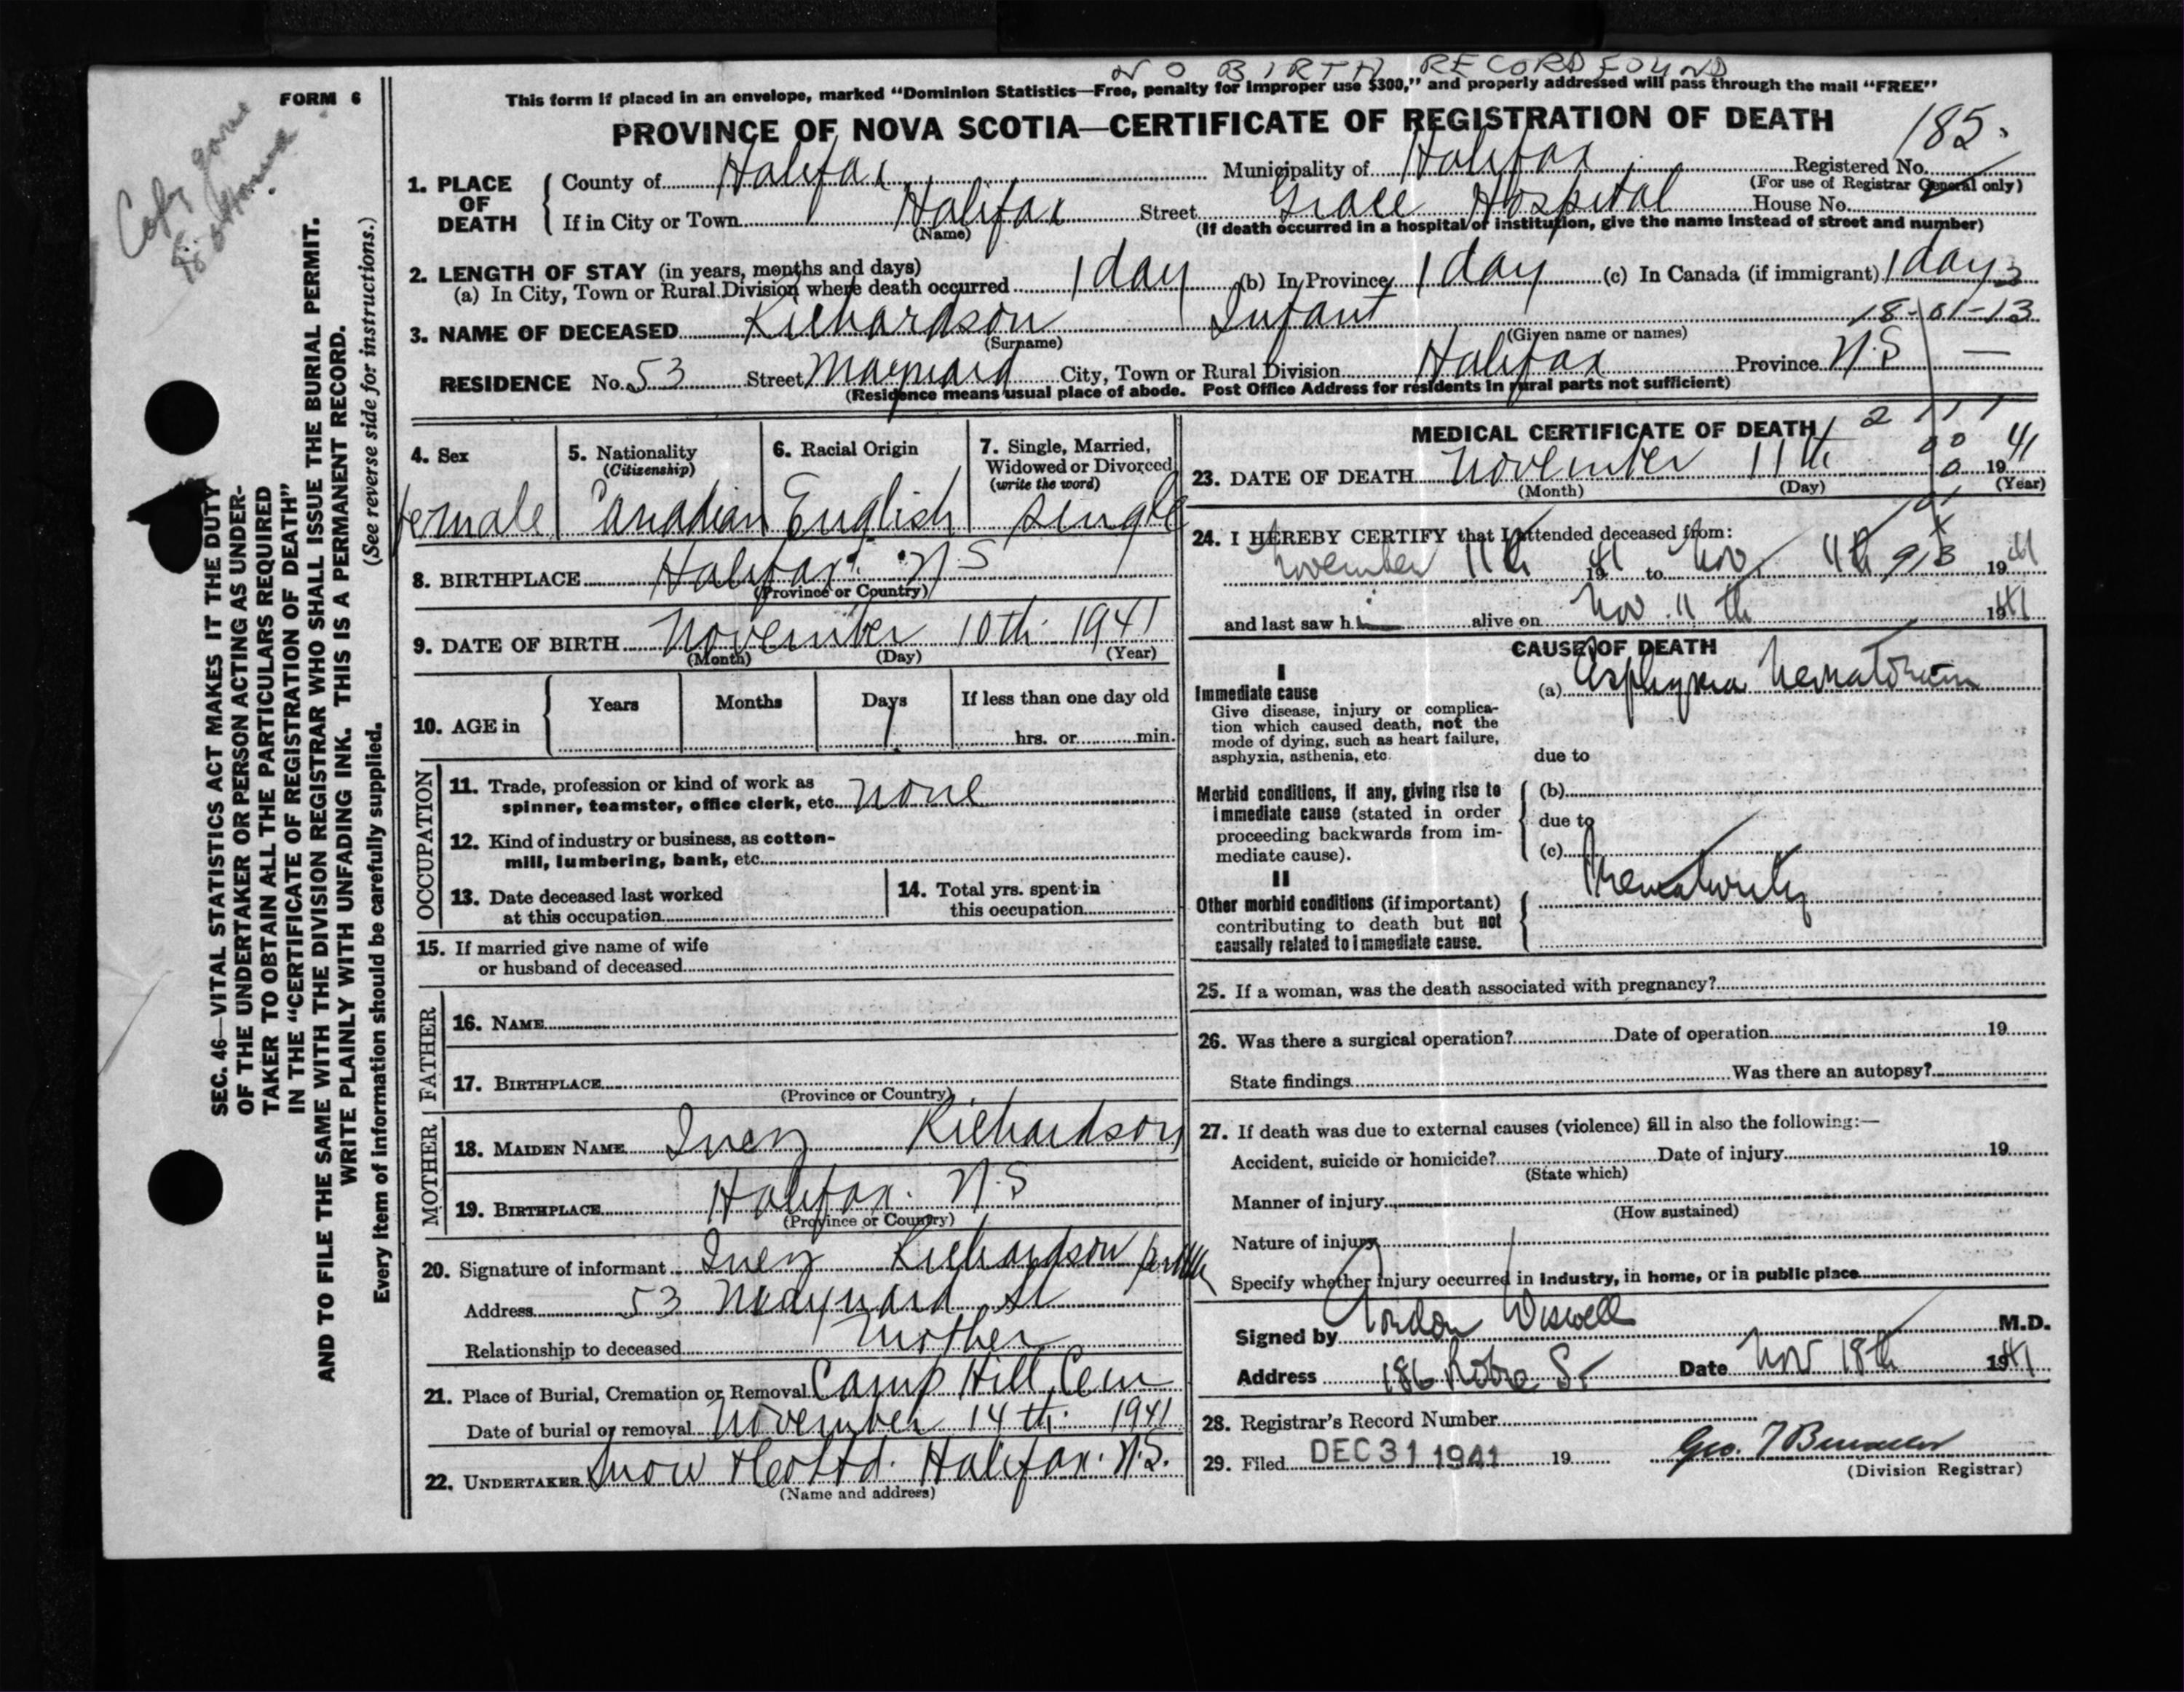 NO BIRTH RECORD FOUND
FORM 6
This form if placed in an envelope, marked "Dominion Statistics—Free, penalty for improper use $300," and properly addressed will pass through the mail "FREE"
PROVINCE OF NOVA SCOTIA—CERTIFICATE OF REGISTRATION OF DEATH
185.
Copy gone
to Ottawa
SEC. 46—VITAL STATISTICS ACT MAKES IT THE DUTY
OF THE UNDERTAKER OR PERSON ACTING AS UNDER-
TAKER TO OBTAIN ALL THE PARTICULARS REQUIRED
IN THE "CERTIFICATE OF REGISTRATION OF DEATH"
AND TO FILE THE SAME WITH THE DIVISION REGISTRAR WHO SHALL ISSUE THE BURIAL PERMIT.
WRITE PLAINLY WITH UNFADING INK. THIS IS A PERMANENT RECORD.
Every item of information should be carefully supplied. (See reverse side for instructions.)
1. PLACE OF DEATH
County of Halifax Municipality of Halifax Registered No.
(For use of Registrar General only)
If in City or Town Halifax Street Grace Hospital House No.
(Name) (If death occurred in a hospital or institution, give the name instead of street and number)
2. LENGTH OF STAY (in years, months and days)
(a) In City, Town or Rural Division where death occurred 1 day (b) In Province 1 day (c) In Canada (if immigrant) 1 day
3. NAME OF DECEASED Richardson Infant 18-01-13
(Surname) (Given name or names)
RESIDENCE No. 53 Street Maynard City, Town or Rural Division Halifax Province N.S —
(Residence means usual place of abode. Post Office Address for residents in rural parts not sufficient)
4. Sex
female
5. Nationality
(Citizenship)
Canadian
6. Racial Origin
English
7. Single, Married,
Widowed or Divorced
(write the word)
single
8. BIRTHPLACE Halifax. N S
(Province or Country)
9. DATE OF BIRTH November 10th 1941
(Month) (Day) (Year)
10. AGE in
Years Months Days If less than one day old
1 hrs. or min.
OCCUPATION
11. Trade, profession or kind of work as
spinner, teamster, office clerk, etc. none
12. Kind of industry or business, as cotton-
mill, lumbering, bank, etc.
13. Date deceased last worked
at this occupation
14. Total yrs. spent in
this occupation
15. If married give name of wife
or husband of deceased
FATHER
16. NAME
17. BIRTHPLACE
(Province or Country)
MOTHER
18. MAIDEN NAME Inez Richardson
19. BIRTHPLACE Halifax. N.S
(Province or Country)
20. Signature of informant Inez Richardson
Address 53 Maynard St
Relationship to deceased Mother
21. Place of Burial, Cremation or Removal Camp Hill Cem
Date of burial or removal November 14th 1941
22. UNDERTAKER Snow & Co Ltd. Halifax. N.S.
(Name and address)
MEDICAL CERTIFICATE OF DEATH
23. DATE OF DEATH November 11th 1941
(Month) (Day) (Year)
24. I HEREBY CERTIFY that I attended deceased from:
November 11th 1941 to Nov. 11th 1941
and last saw h alive on Nov. 11th 1941
CAUSE OF DEATH
I
Immediate cause
Give disease, injury or complica-
tion which caused death, not the
mode of dying, such as heart failure,
asphyxia, asthenia, etc.
(a) Asphyxia Neonatorum
due to
Morbid conditions, if any, giving rise to
immediate cause (stated in order
proceeding backwards from im-
mediate cause).
(b)
due to
(c)
II
Other morbid conditions (if important)
contributing to death but not
causally related to immediate cause.
Prematurity
25. If a woman, was the death associated with pregnancy?
26. Was there a surgical operation? Date of operation 19
State findings Was there an autopsy?
27. If death was due to external causes (violence) fill in also the following:—
Accident, suicide or homicide? Date of injury 19
(State which)
Manner of injury
(How sustained)
Nature of injury
Specify whether injury occurred in industry, in home, or in public place
Signed by Gordon Wiswell M.D.
Address 186 Robie St Date Nov 18th 1941
28. Registrar's Record Number
29. Filed DEC 31 1941 19 Geo.
(Division Registrar)